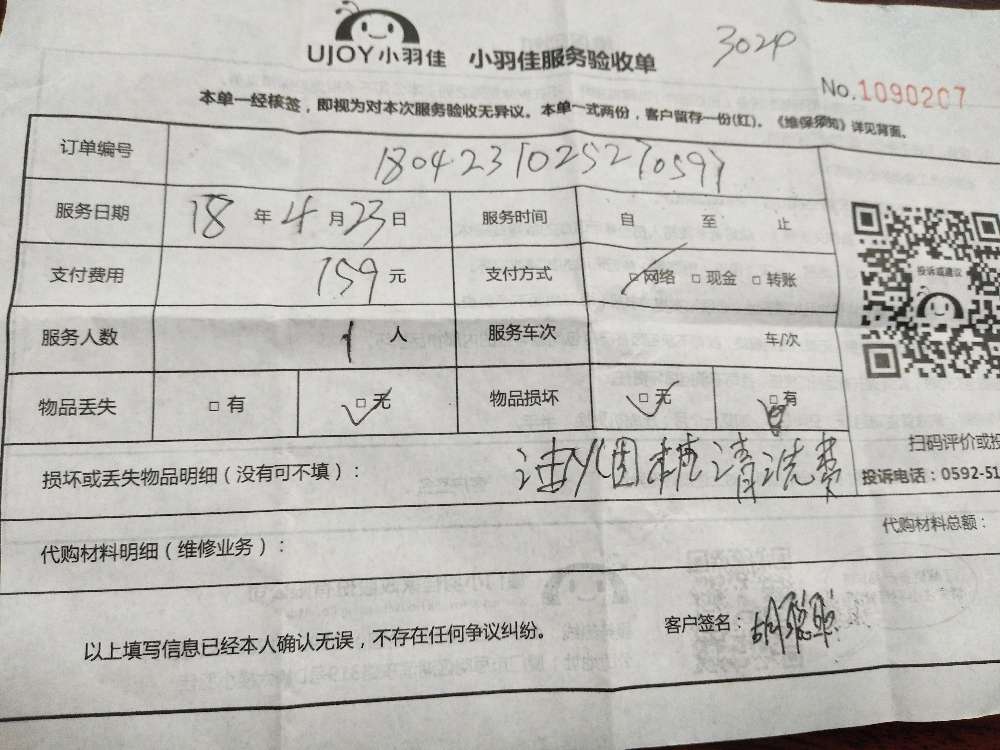 UJOY小羽佳 小羽佳服务验收单 3024
No.1090207
本单一经核签，即视为对本次服务验收无异议。本单一式两份，客户留存一份(红)。《维保须知》详见背面。
订单编号 180423102527059
服务日期 18 年 4 月 23 日 服务时间 自 至 止
支付费用 159 元 支付方式 □网络 □现金 □转账
投诉或建议
服务人数 1 人 服务车次 车/次
物品丢失 □有 □无 物品损坏 □无 □有
扫码评价或投
损坏或丢失物品明细（没有可不填）： 清洗费
投诉电话：0592-51
代购材料明细（维修业务）： 代购材料总额：
以上填写信息已经本人确认无误，不存在任何争议纠纷。 客户签名：胡聪聪